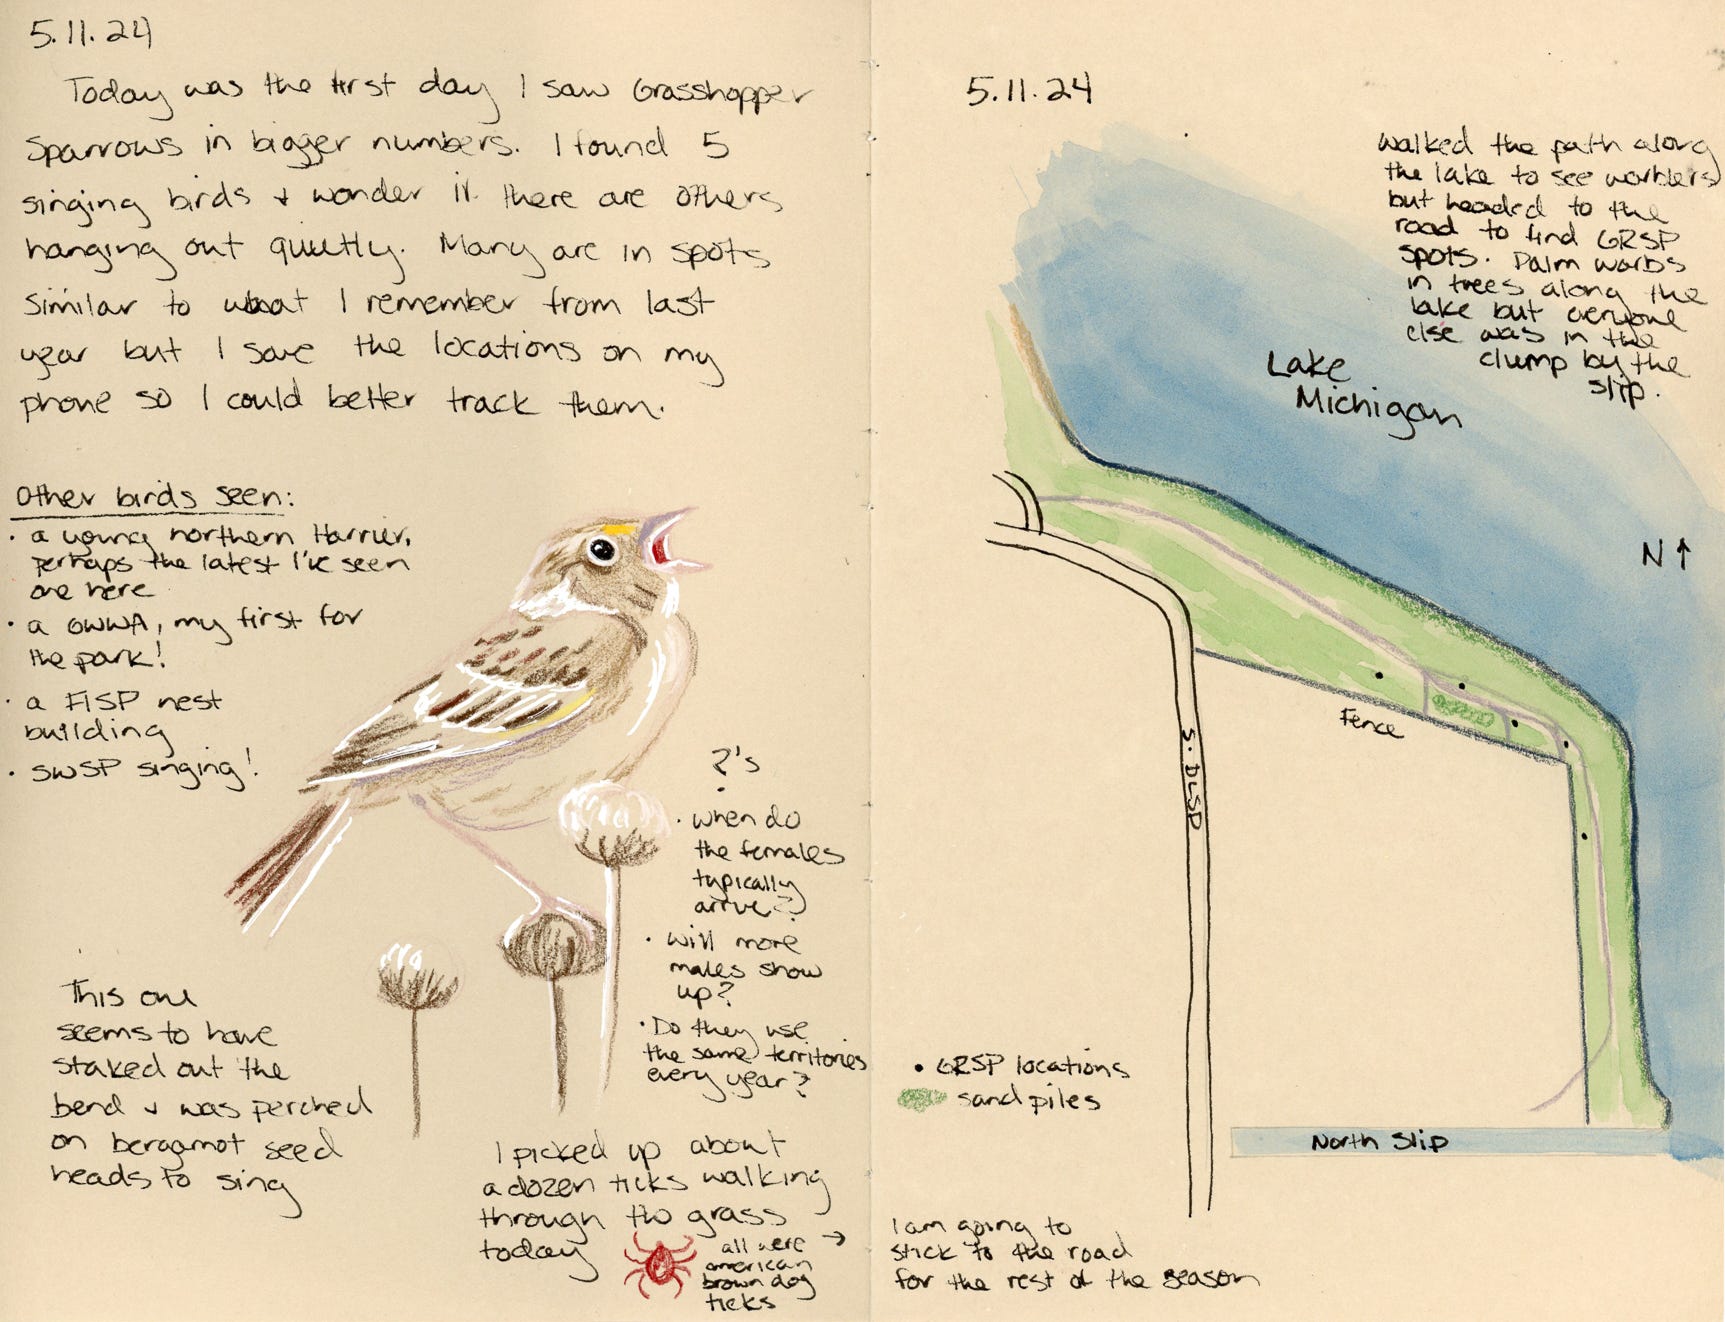 5.11.24
Today was the first day I saw Grasshopper
Sparrows in bigger numbers. I found 5
singing birds + wonder if there are others
hanging out quietly. Many are in spots
similar to what I remember from last
year but I save the locations on my
phone so I could better track them.
Other birds seen:
• a young northern Harrier,
perhaps the latest I've seen
one here
• a GWWA, my first for
the park!
• a FISP nest
building
• SWSP singing!
?'s
• when do
the females
typically
arrive?
• will more
males show
up?
• Do they use
the same territories
every year?
This one
seems to have
staked out the
bend + was perched
on bergamot seed
heads to sing
I picked up about
a dozen ticks walking
through the grass
today
all were →
american
brown dog
ticks
5.11.24
walked the path along
the lake to see warblers
but headed to the
road to find GRSP
spots. Palm warbs
in trees along the
lake but everyone
else was in the
clump by the
slip.
Lake
Michigan
N ↑
Fence
S. DLSD
• GRSP locations
sand piles
North Slip
I am going to
stick to the road
for the rest of the season